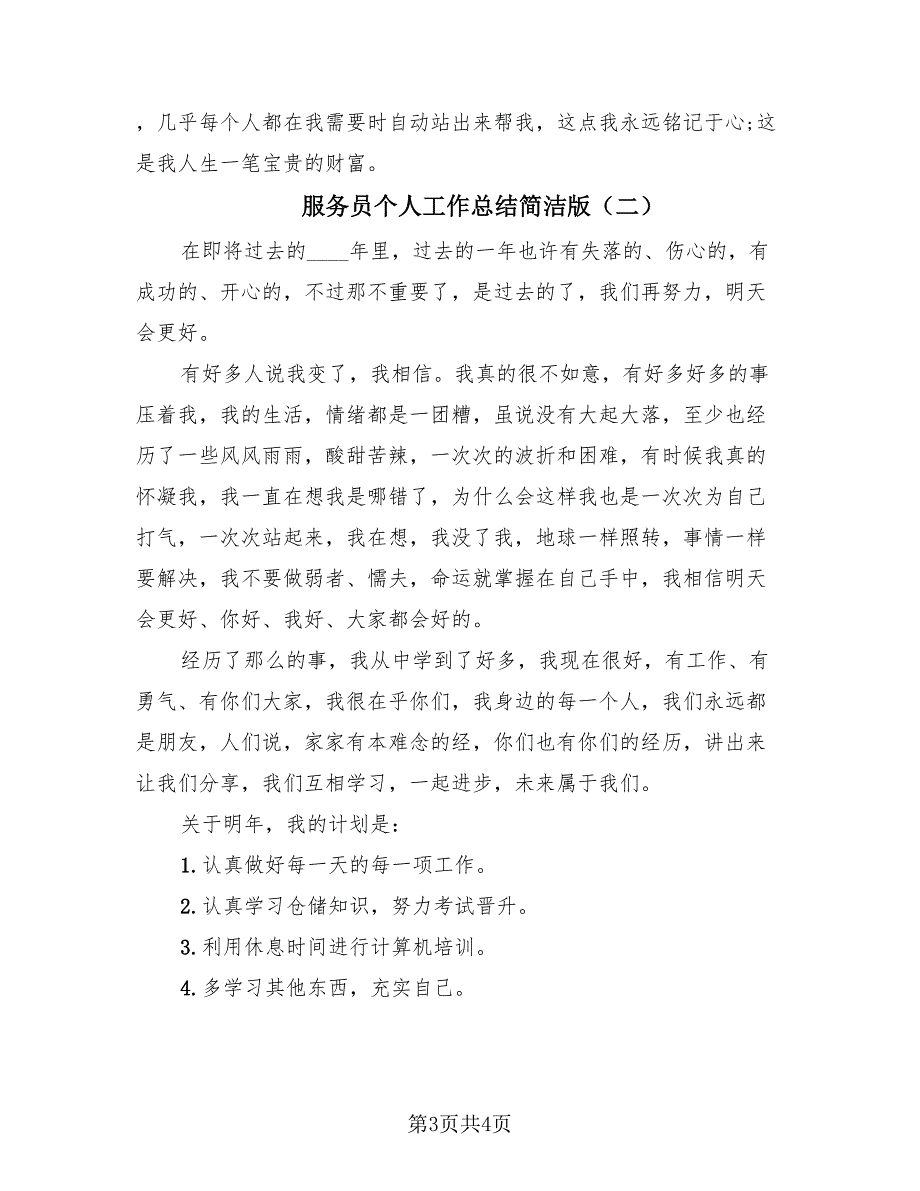 ，几乎每个人都在我需要时自动站出来帮我，这点我永远铭记于心;这
是我人生一笔宝贵的财富。
服务员个人工作总结简洁版（二）
在即将过去的____年里，过去的一年也许有失落的、伤心的，有
成功的、开心的，不过那不重要了，是过去的了，我们再努力，明天
会更好。
有好多人说我变了，我相信。我真的很不如意，有好多好多的事
压着我，我的生活，情绪都是一团糟，虽说没有大起大落，至少也经
历了一些风风雨雨，酸甜苦辣，一次次的波折和困难，有时候我真的
怀凝我，我一直在想我是哪错了，为什么会这样我也是一次次为自己
打气，一次次站起来，我在想，我没了我，地球一样照转，事情一样
要解决，我不要做弱者、懦夫，命运就掌握在自己手中，我相信明天
会更好、你好、我好、大家都会好的。
经历了那么的事，我从中学到了好多，我现在很好，有工作、有
勇气、有你们大家，我很在乎你们，我身边的每一个人，我们永远都
是朋友，人们说，家家有本难念的经，你们也有你们的经历，讲出来
让我们分享，我们互相学习，一起进步，未来属于我们。
关于明年，我的计划是：
1.认真做好每一天的每一项工作。
2.认真学习仓储知识，努力考试晋升。
3.利用休息时间进行计算机培训。
4.多学习其他东西，充实自己。
第3页共4页